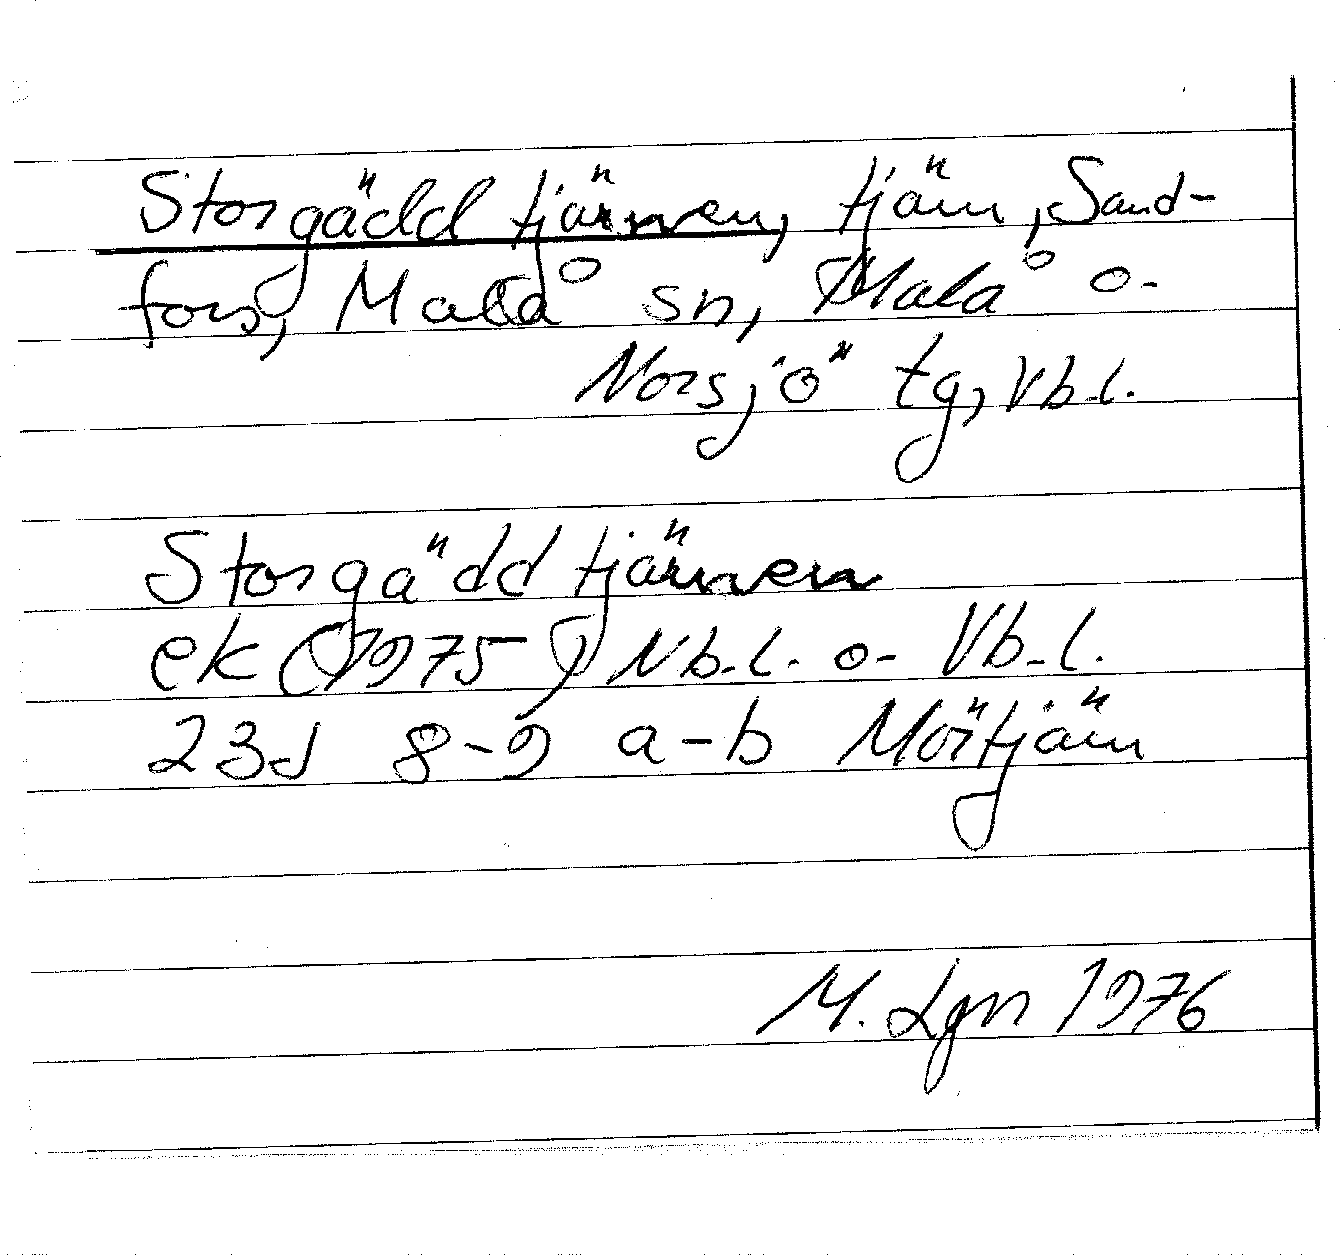 Storgäddtjärnen, tjärn, Sand-
fors, Malå sn, Malå o.
Norsjö tg, Vb.l.
Storgäddtjärnen
ek (1975) Nb.l. o. Vb.l.
23J 8-9 a-b Mörtjärn
M. Lgn 1976